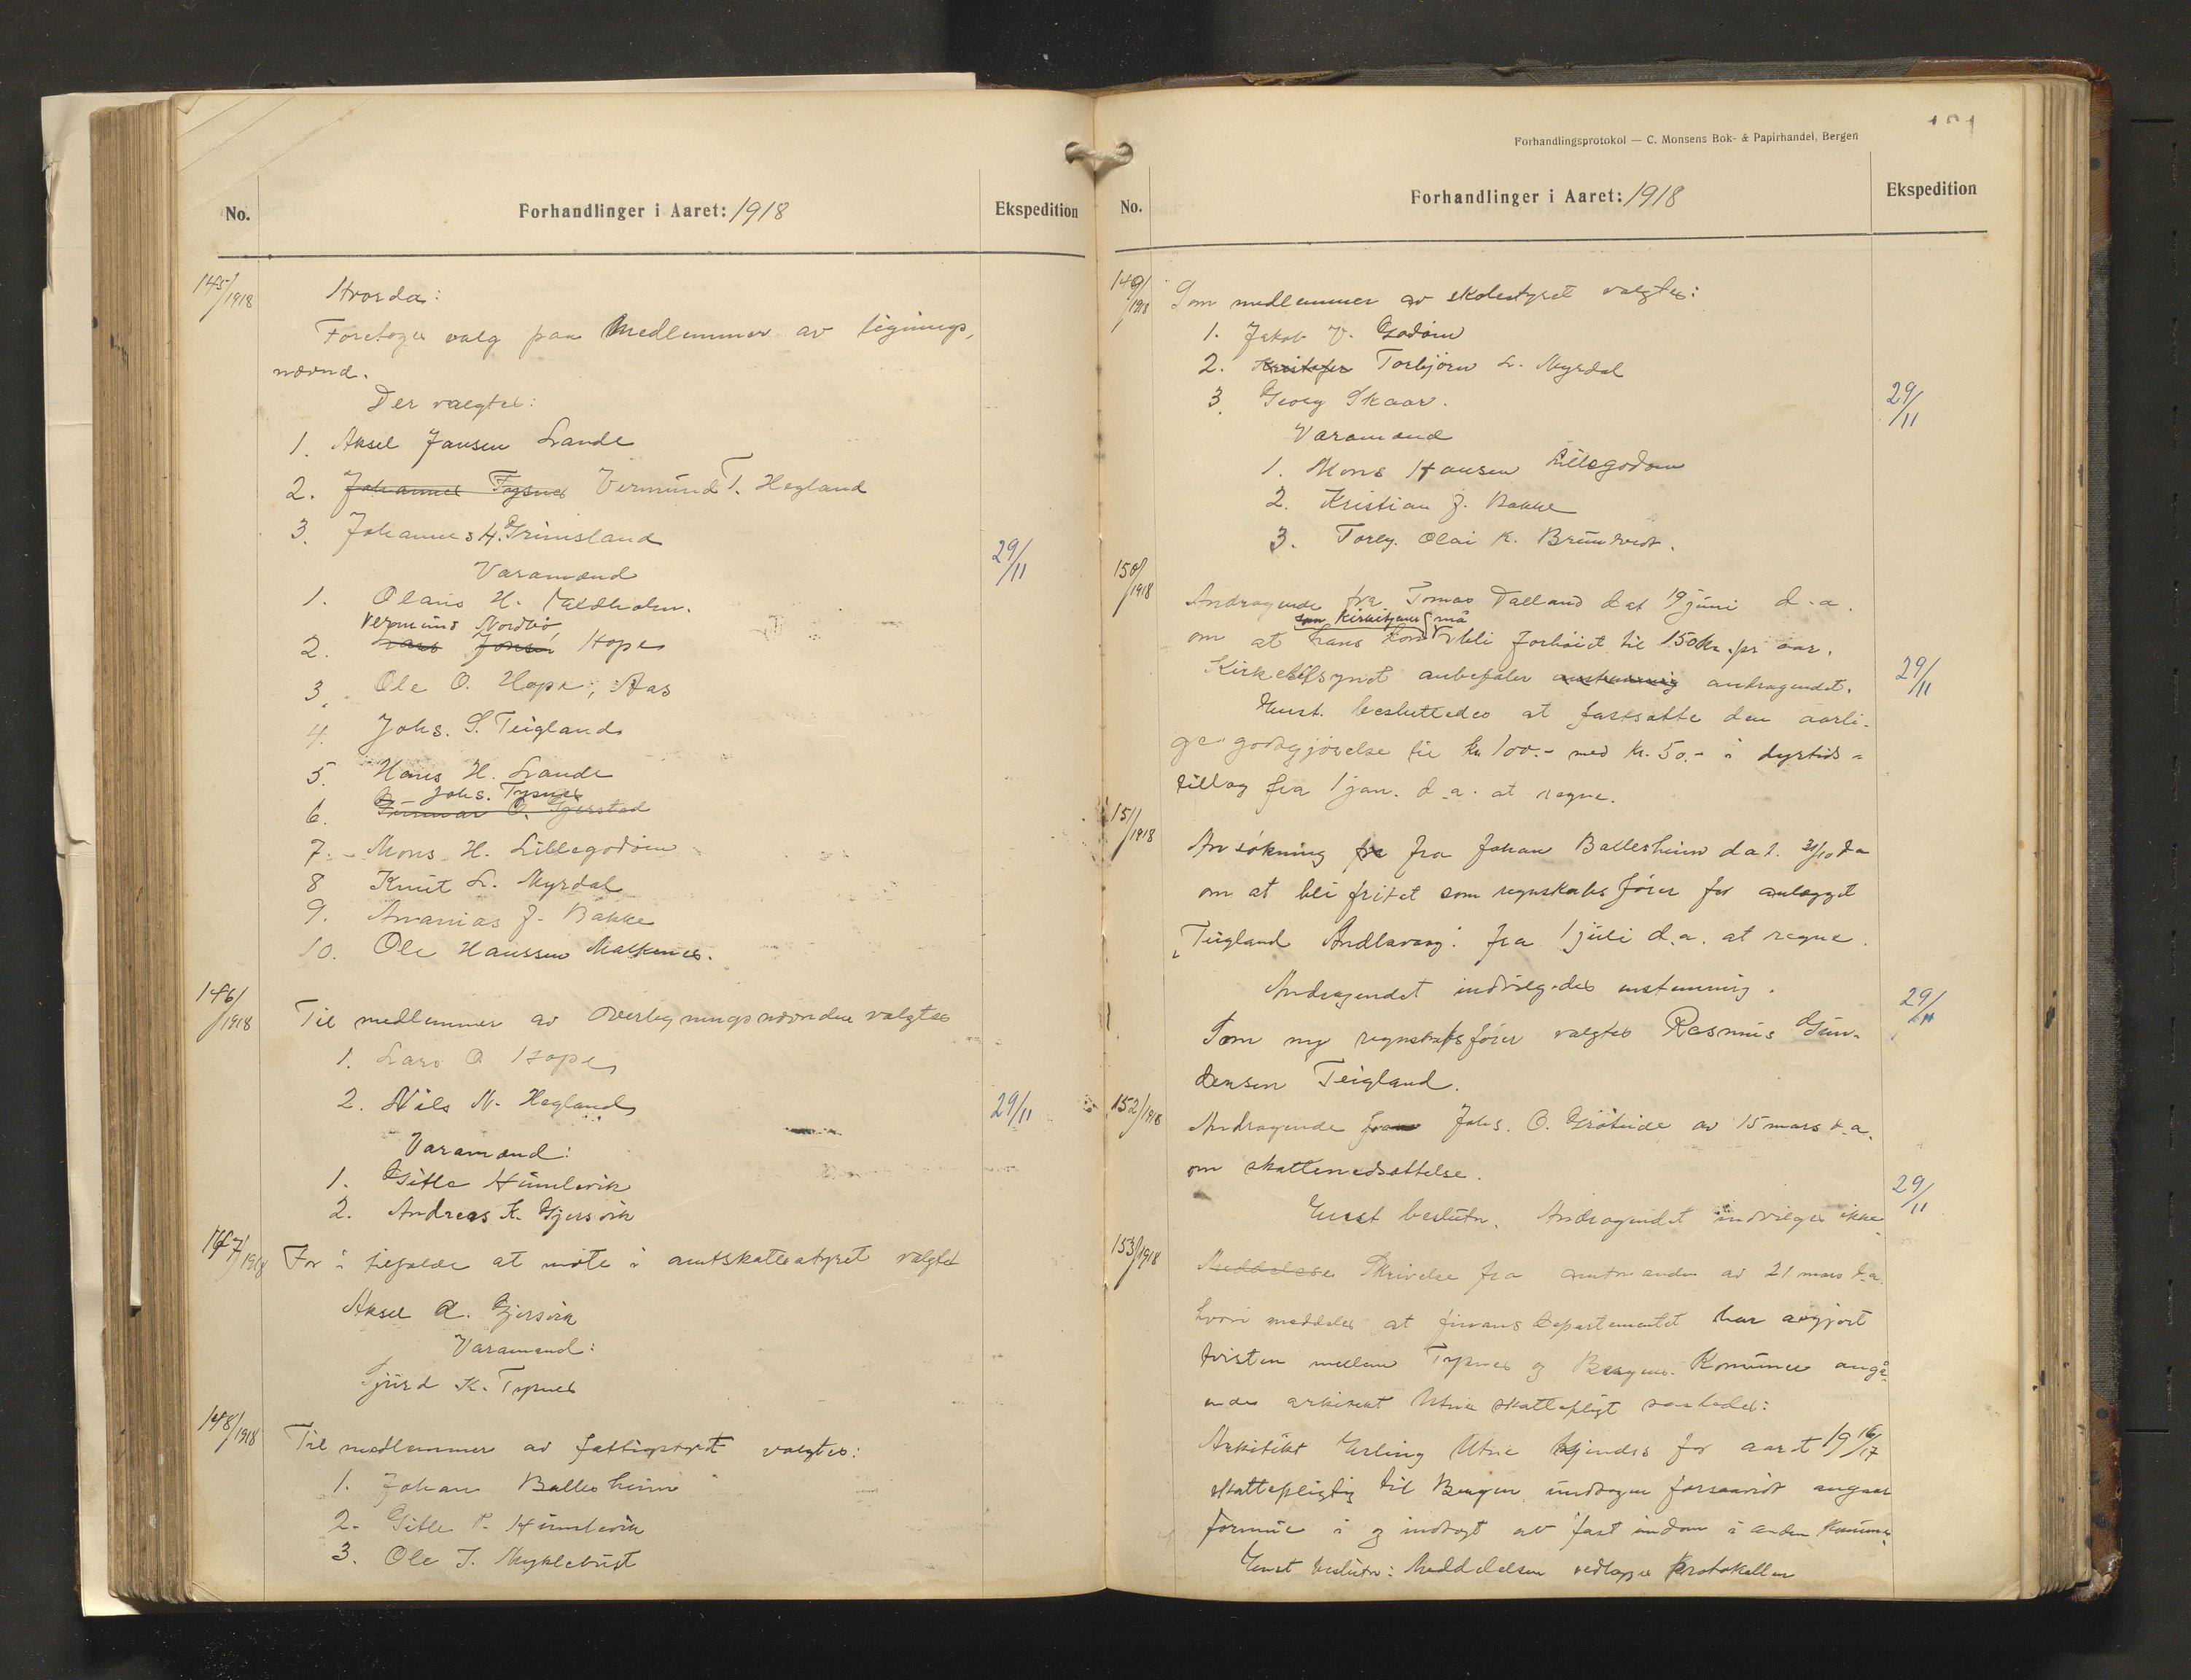 No.
Forhandlinger i Aaret: 1918
Ekspedition
145/1918
Hvorda:
Foretoges valg paa Medlemmer av lignings,
nævnd.
Der valgtes:
1. Aksel Jansen Lande
2. Johannes Tysnes Vermund T. Hegland
3. Johannes H. Grimsland
29/11
Varamænd
1. Olaus H.
Vermund Nordbö
2. Lars Jonsen Hope
3. Ole O. Hope, Aas
4. Johs. S. Teigland
5. Hans H. Lande
Johs. Tysnes
6. Gunnar O. Gjerstad
7. Mons H. Lillegodöim
8 Knut L. Myrdal
9. Ananias J. Bakke
10. Ole Hanssen Malkenes.
146/1918
Til medlemmer av overligningsnævnden valgtes
1. Lars O Hope
2. Nils N. Hegland
29/11
Varamænd:
1. Gitle Humlevik
2. Andreas K. Gjersvik
147/1918
For i tilfælde at möte i amtskattestyret valgtes
Aksel A. Gjersvik
Varamænd:
Sjurd K. Tysnes
148/1918
Til medlemmer av fattigstyret valgtes:
1. Johan Ballesheim
2. Gitle P. Humlevik
3. Ole J. Myklebust
101
Forhandlingsprotokol — C. Monsens Bok- & Papirhandel, Bergen
No.
Forhandlinger i Aaret: 1918
Ekspedition
149/1918
Som medlemmer av skolestyret valgtes:
1. Jakob V. Godöim
2. Kristofer Torbjörn L. Myrdal
3. Georg Skaar.
29/11
Varamænd
1. Mons Hansen Lillegodöim
2. Kristian J. Bakke
3. Torlg. Olai K. Bruntveit.
150/1918
Andragende fra Tomas Dalland dat 19 juni d.a.
som kirketjener må
om at hans lön bli forhöiet til 150 kr. pr aar.
Kirketilsynet anbefaler enstemmig andragendet.
29/11
Enst. besluttedes at fastsætte den aarli-
ge godtgjörelse til kr 100.- med kr. 50.- i dyrtids-
tillæg fra 1 jan. d.a. at regne.
151/1918
Ansökning fra fra Johan Ballesheim dat. 31/10 d.a
om at bli fritat som regnskabsförer for anlægget
"Teigland Andlavaag" fra 1 juli d.a. at regne.
Andragendet indvilgedes enstemmig.
29/11
Som ny regnskabsförer valgtes Rasmus Gun-
dersen Teigland.
152/1918
Andragende fra Johs. O. Gröteide av 15 mars d.a.
om skattenedsættelse.
29/11
Enst beslutn. Andragendet indvilges ikke.
153/1918
Meddelelse Skrivelse fra amtmanden av 21 mars d.a.
hvori meddeles at finansdepartementet har avgjort
tvisten mellem Tysnes og Bergens Komuner angå-
ende arkitekt Utnes skattepligt saaledes:
Arkitekt Erling Utne kjendes for aaret 1916/17
skattepligtig til Bergen undtagen forsaavidt angaar
formue i og indtægt av fast eindom i anden Komune.
Enst beslutn: Meddelelsen vedlægges protokollen